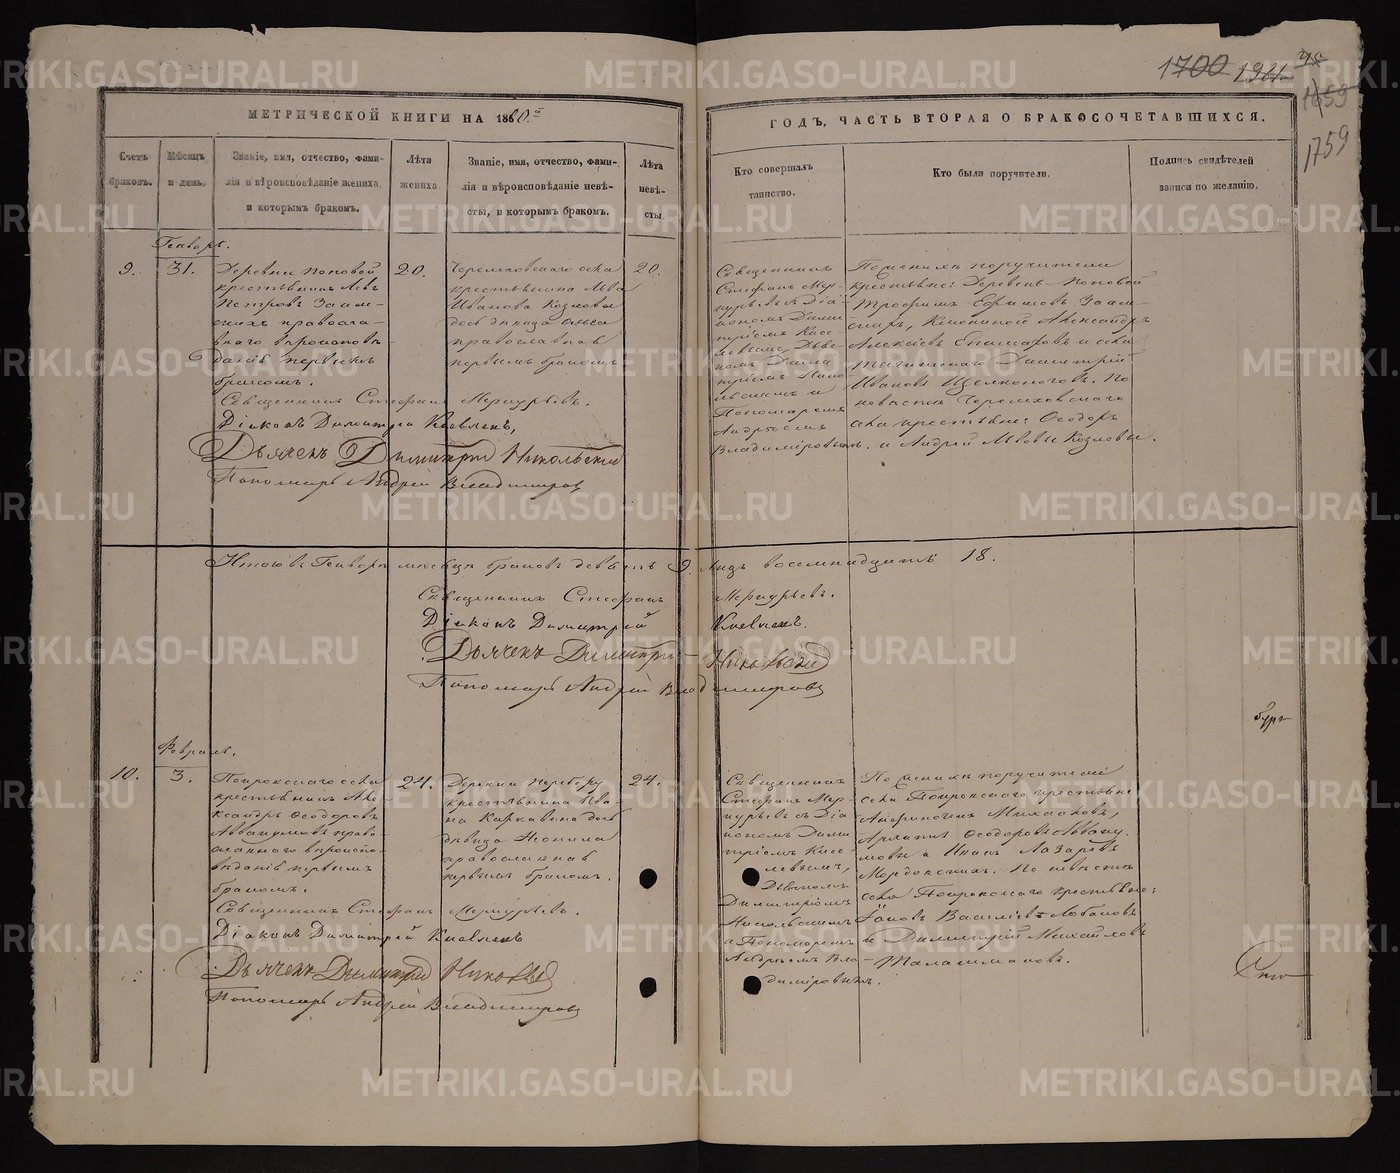 1700 1911 45
1659
1759
МЕТРИЧЕСКОЙ КНИГИ НА 1860.й
ГОДЪ, ЧАСТЬ ВТОРАЯ О БРАКОСОЧЕТАВШИХСЯ.
Счетъ
браковъ.
Мѣсяцъ
и день.
Званіе, имя, отчество, фами-
лія и вѣроисповѣданіе жениха,
и которымъ бракомъ.
Лѣта
жениха.
Званіе, имя, отчество, фами-
лія и вѣроисповѣданіе невѣ-
сты, и которымъ бракомъ.
Лѣта
невѣ-
сты.
Кто совершалъ
таинство.
Кто были поручители.
Подпись свидѣтелей
записи по желанію.
Генварь.
9.
31.
Деревни Поповой
крестьянинъ Левъ
Петровъ
православ-
наго вѣроисповѣ-
данія первымъ
бракомъ.
20.
села
крестьянина Льва
Иванова Козлова
дочь дѣвица Ольга
православная
первымъ бракомъ
20.
Священникъ
Стефанъ Мер-
курьевъ съ Діа-
кономъ Дими-
тріемъ Кисе-
левымъ, Дьяч-
комъ Дими-
тріемъ Нико-
льскимъ и
Пономаремъ
Андреемъ
Владиміровымъ.
По женихѣ поручители
крестьяне: Деревень Поповой
Трофимъ Ефимовъ
Александръ
Алексѣевъ и села
Димитрій
Ивановъ Щелконоговъ. По
невѣстѣ Черемховскаго
села крестьяне: Ѳеодоръ
и Андрей Львовы Козловы.
Священникъ Стефанъ Меркурьевъ.
Діаконъ Димитрій Киселевъ,
Дьячекъ Димитрій Никольскій
Пономарь Андрей Владиміровъ
Итого въ Генварѣ мѣсяцѣ браковъ девять 9. лицъ восемнадцать 18.
Священникъ Стефанъ Меркурьевъ.
Діаконъ Димитрій Киселевъ.
Дьячекъ Димитрій Никольскій
Пономарь Андрей Владиміровъ
Февраль.
10.
3.
Покровскаго села
крестьянинъ Але-
ксандръ Ѳеодоровъ
Аввакумовъ право-
славнаго вѣроиспо-
вѣданія первымъ
бракомъ.
24.
Деревни Перебору
крестьянина Ива-
на дочь
дѣвица Неонила
православная
первымъ бракомъ.
24.
Священникъ
Стефанъ Мер-
курьевъ съ Діа-
кономъ Дими-
тріемъ Кисе-
левымъ,
Дьячкомъ
Димитріемъ
Никольскимъ
и Пономаремъ
Андреемъ Вла-
диміровымъ.
По женихѣ поручители
села Покровскаго крестьяне
Михайловъ,
Архипъ Ѳеодоровъ Авваку-
мовы и Иванъ Лазаревъ
По невѣстѣ
села Покровскаго крестьяне:
Іаковъ Васильевъ Лобановъ
и Димитрій Михайловъ
Талашмановъ.
Священникъ Стефанъ Меркурьевъ.
Діаконъ Димитрій Киселевъ
Дьячекъ Димитрій Никольскій
Пономарь Андрей Владиміровъ
METRIKI.GASO-URAL.RU